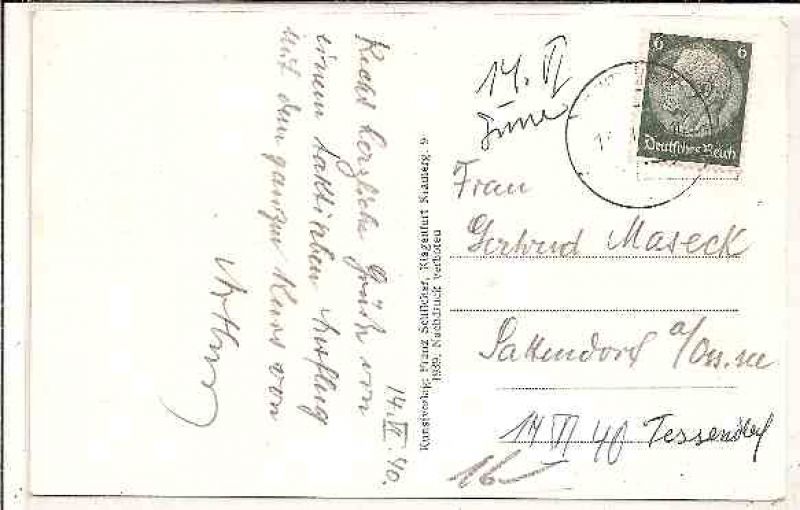 14. VI. 40.
Recht herzliche Grüße von
einem Ausflug
mit dem ganzen Kurs von
Arthur
Kunstverlag: Franz Schilcher, Klagenfurt Kramerg. 9
1939. Nachdruck verboten
14. VI
6 6
Deutsches Reich
Frau
Gertrud Maseck
Sattendorf a/Oss.see
14 VI 40 Tessendorf
16